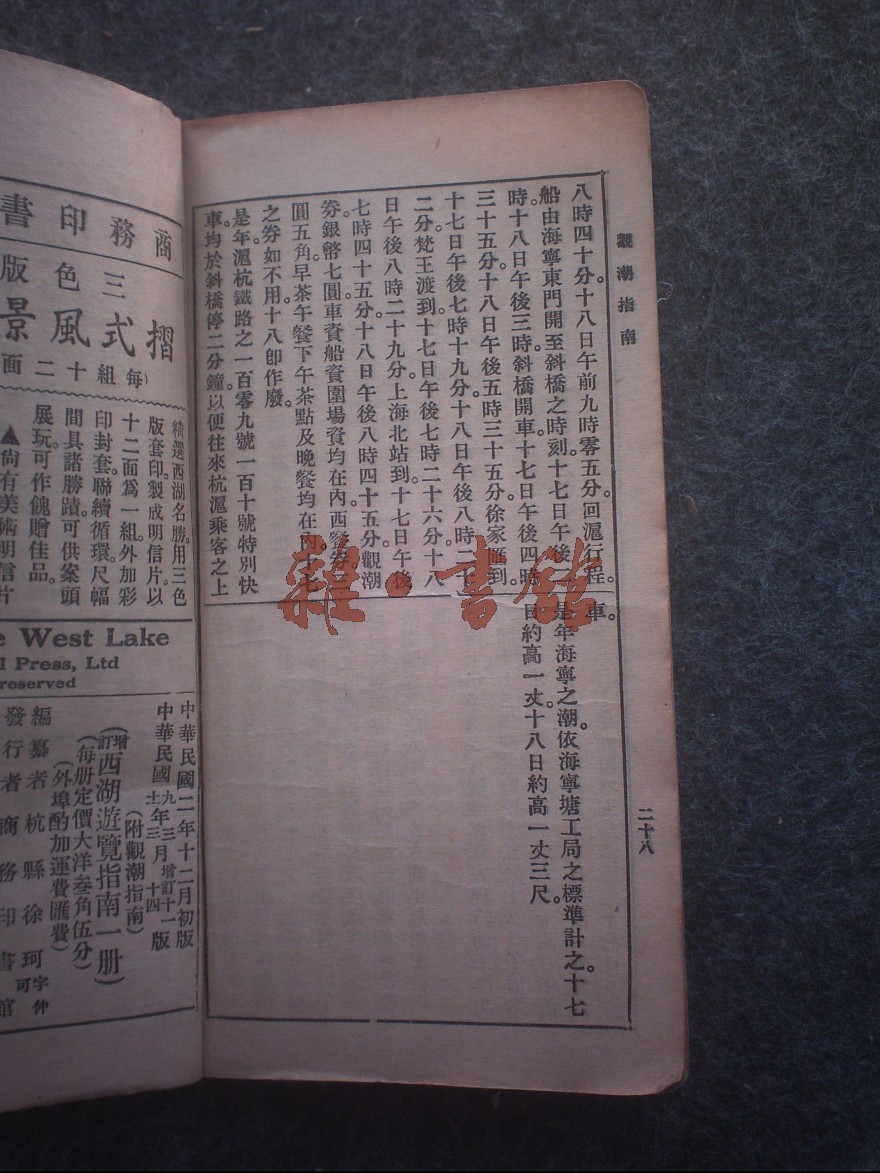 觀潮指南
二十八
八時四十分。十八日午前九時零五分。回滬行程。
船由海寧東門開至斜橋之時刻。十七日午後
時。十八日午後三時。斜橋開車。十七日午後四時
三十五分。十八日午後五時三十五分。徐家匯到。
十七日午後七時十九分。十八日午後八時二十
二分。梵王渡到。十七日午後七時二十六分。十八
日午後八時二十九分。上海北站到。十七日午後
七時四十五分。十八日午後八時四十五分。觀潮
券。銀幣七圓。車資船資圍場資均在內。西餐券三
圓五角。早茶午餐下午茶點及晚餐均在內。十七
之券如不用。十八卽作廢。
是年滬杭鐵路之一百零九號一百十號特別快
車。均於斜橋停二分鐘。以便往來杭滬乘客之上
車。
是年海寧之潮。依海寧塘工局之標準計之。十七
日約高一丈。十八日約高一丈三尺。
商務印書
三色版
摺式風景
(每組十二面
精選西湖名勝。用三色
版套印。製成明信片。以
十二面爲一組。外加彩
印封套。聯續循環。尺幅
間具諸勝蹟。可供案頭
展玩。可作餽贈佳品。
▲尙有美術明信片
West Lake
Press, Ltd
reserved
中華民國二年十二月初版
中華民國九年三月增訂十一版
十三年三月十四版
(附觀潮指南)
(增訂西湖遊覽指南一册)
(每册定價大洋叁角伍分)
(外埠酌加運費匯費)
編纂者杭縣徐珂字仲可
發行者商務印書館
雜·書館